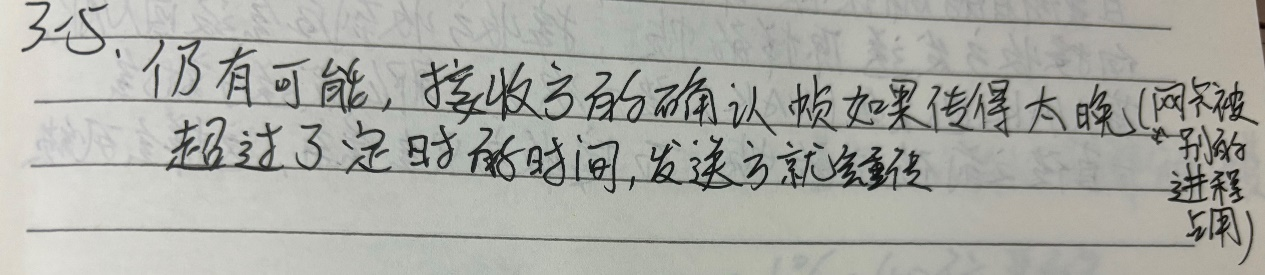 3-5.
仍有可能,接收方的确认帧如果传得太晚(网卡被别的进程占用)
超过了定时的时间,发送方就会重传